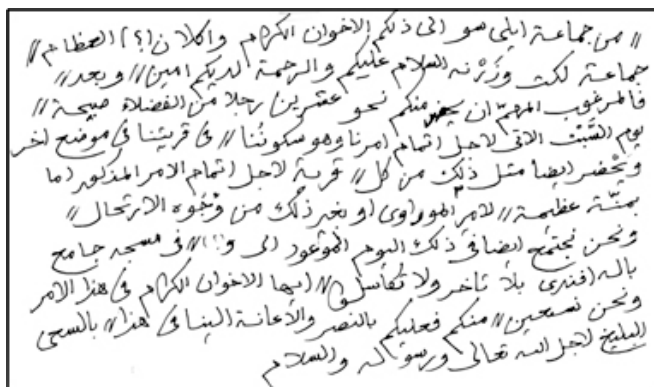 // من جماعة ايلى سو الى ذلكم الاخوان الكرام واكلان (؟) العظام //
جماعة لكت وزرنه السلام عليكم والرحمة لديكم امين // وبعد //
فالمرغوب المهم ان يحضر منكم نحو عشرين رجلا من الفضلاة صبيحة //
يوم السَّبْت الاتى لاجل اتمام امرنا وهو سكوننا // فى قريتنا فى موضع اخر
ويحضر ايضا مثل ذلك من كل // قرية لاجل اتمام الامر المذكور اما
بمنّة عظيمة // لامر او بغير ذلك من وُجُوه الارتحال //
ونحن نجتمع ايضا فى ذلك اليوم الموعود الى و(؟) // فى مسجد جامع
باله افندى بلا تاخر ولا تكاسل // ايها الاخوان الكرام فى هذا الامر
ونحن نستعين // منكم فعليكم بالنصر والاعانة الينا فى هذا // بالسعى
البليغ لاجل الله تعالى ورسوله والسلام